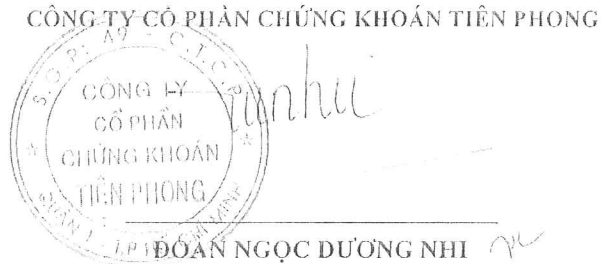 CÔNG TY CỔ PHẦN CHỨNG KHOÁN TIÊN PHONG
CÔNG TY
CỔ PHẦN
CHỨNG KHOÁN
TIÊN PHONG
QUẬN 1 - T.P HỒ CHÍ MINH
ĐOÀN NGỌC DƯƠNG NHI